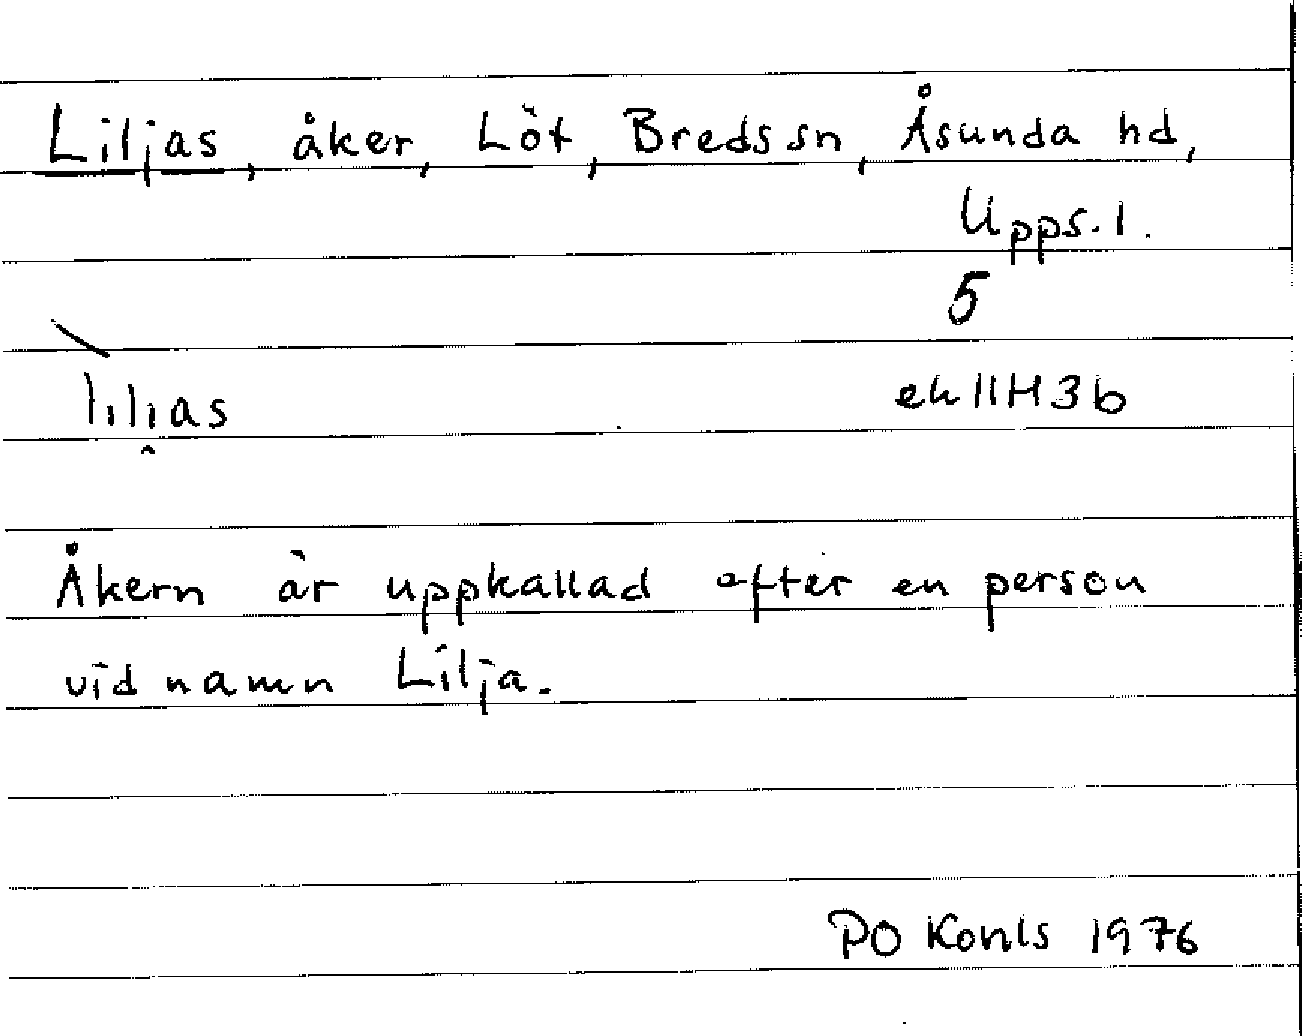 Liljas, åker, Löt, Breds sn, Åsunda hd,
Upps. l.
5
\
lili̯as
ek 11H3b
Åkern är uppkallad efter en person
vid namn Lilja.
PO Konls 1976